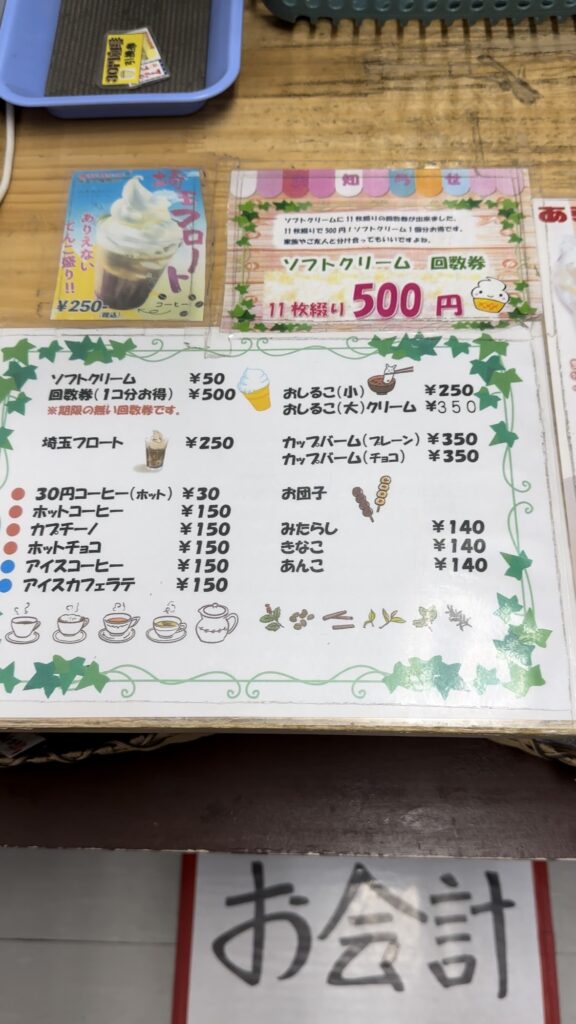 30円珈琲
引換券
埼玉フロート
ありえない
てんこ盛り!!
¥250-(税込)
コーヒー
知らせ
ソフトクリームに11枚綴りの回数券が出来ました。
11枚綴りで500円!ソフトクリーム1個分お得です。
家族やご友人と分け合ってもいいですよね。
ソフトクリーム 回数券
11枚綴り 500円
あ
ソフトクリーム ¥50
回数券(1コ分お得) ¥500
※期限の無い回数券です。
埼玉フロート ¥250
30円コーヒー(ホット) ¥30
ホットコーヒー ¥150
カプチーノ ¥150
ホットチョコ ¥150
アイスコーヒー ¥150
アイスカフェラテ ¥150
おしるこ(小) ¥250
おしるこ(大)クリーム ¥350
カップバーム(プレーン) ¥350
カップバーム(チョコ) ¥350
お団子
みたらし ¥140
きなこ ¥140
あんこ ¥140
お会計